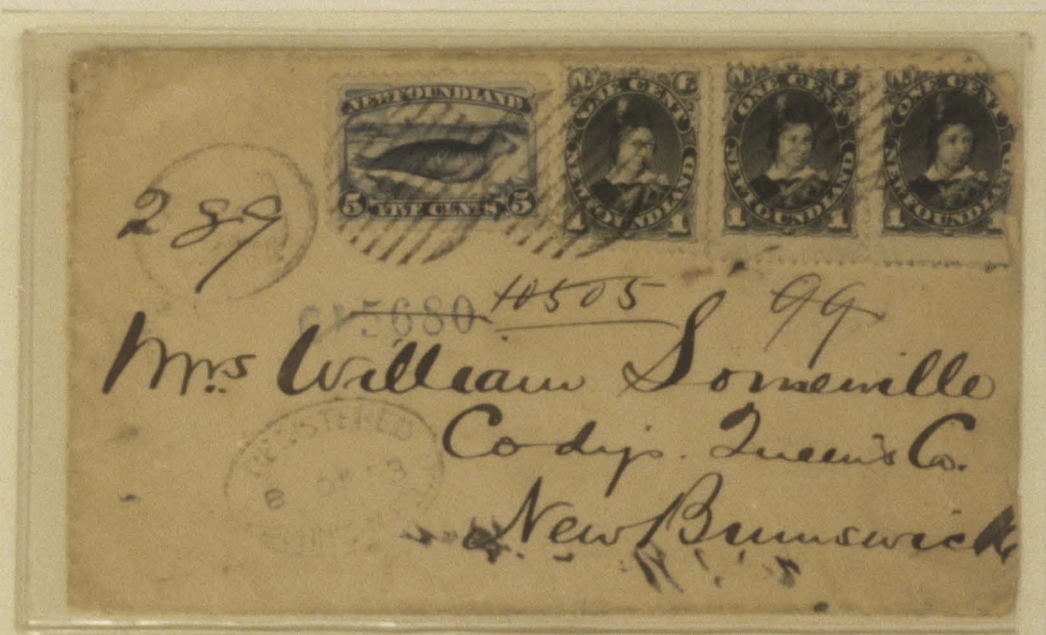 NEWFOUNDLAND
5 FIVE CENTS 5
N. ONE CENT F.
NEWFOUNDLAND
1 1
N. ONE CENT F.
NEWFOUNDLAND
1 1
N. ONE CENT F.
NEWFOUNDLAND
1 1
289
5680 10505 99
Mrs William Somerville
Codys. Queen's Co.
New Brunswick
REGISTERED
8